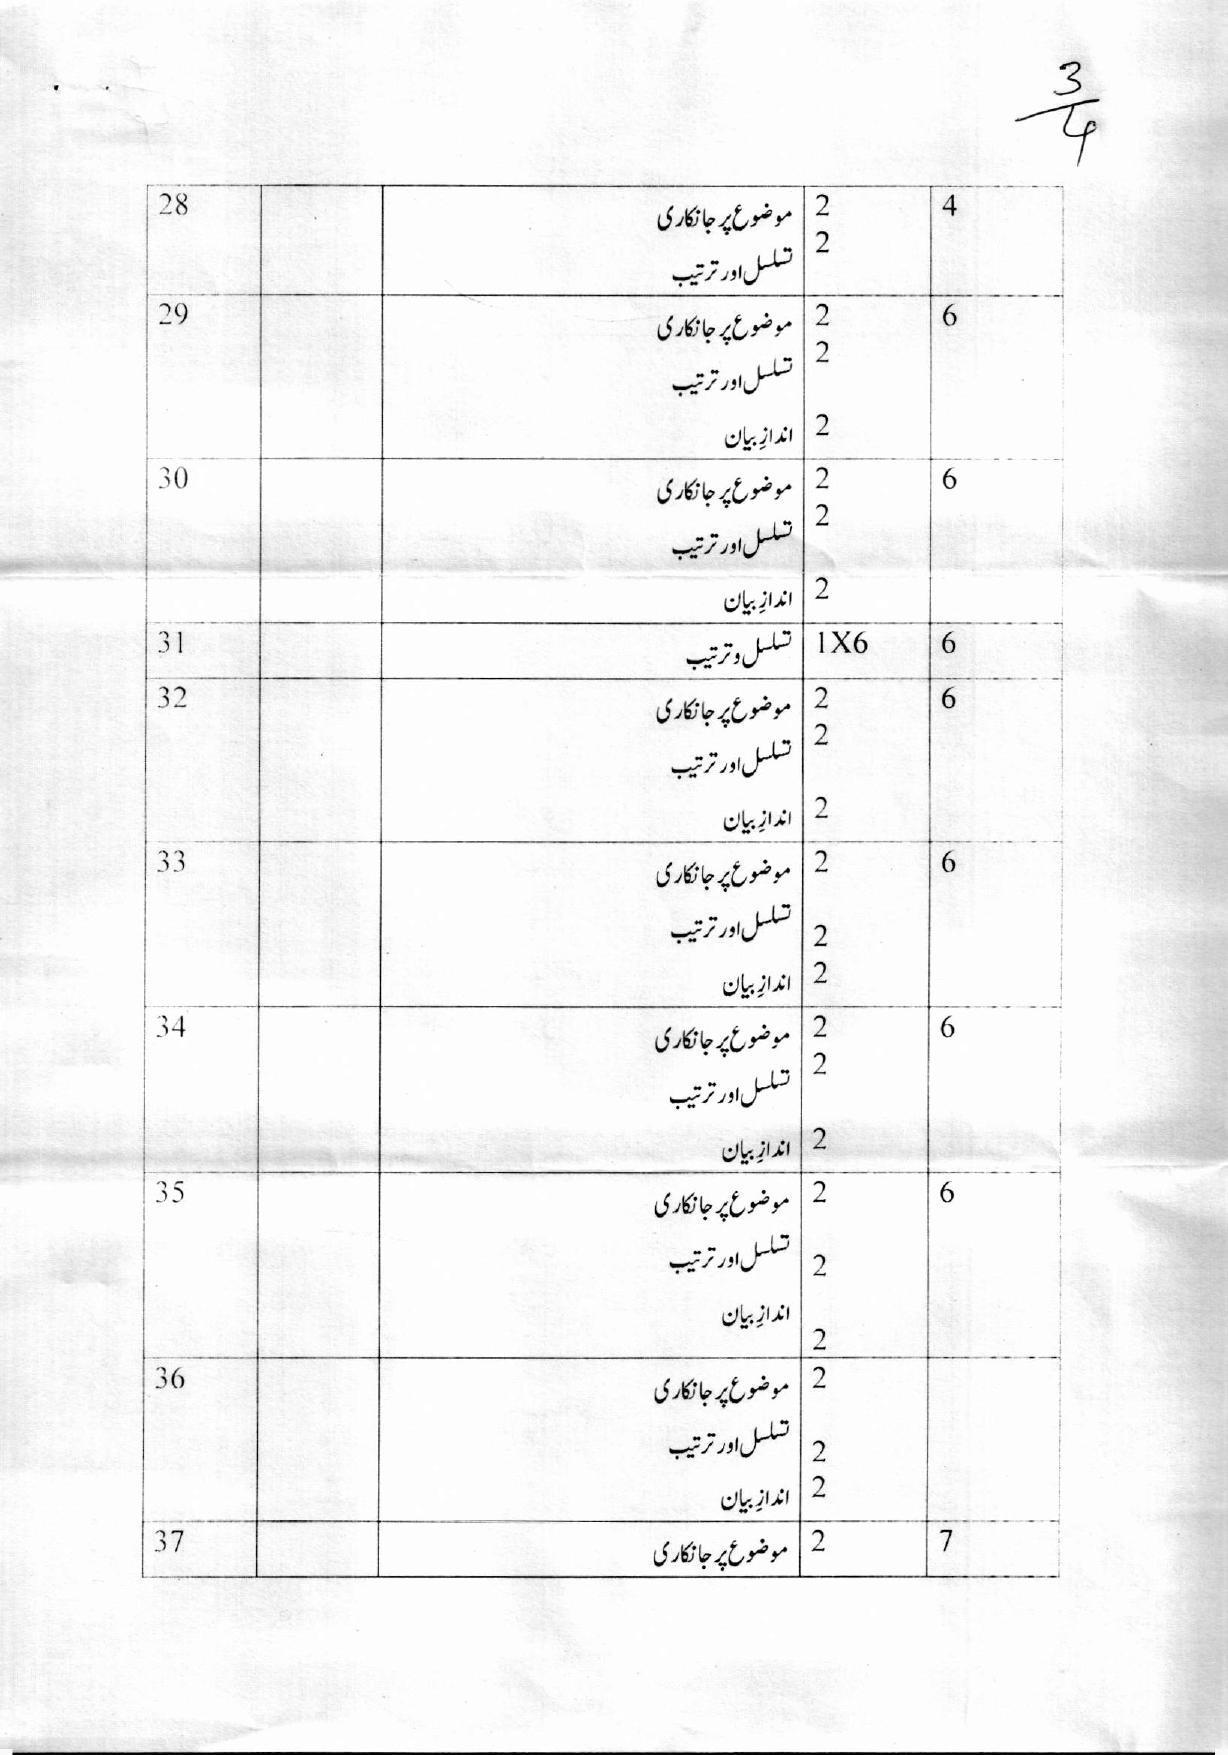 3/4
28 موضوع پر جانکاری 2 4
تسلسل اور ترتیب 2
29 موضوع پر جانکاری 2 6
تسلسل اور ترتیب 2
اندازِ بیان 2
30 موضوع پر جانکاری 2 6
تسلسل اور ترتیب 2
اندازِ بیان 2
31 تسلسل و ترتیب 1X6 6
32 موضوع پر جانکاری 2 6
تسلسل اور ترتیب 2
اندازِ بیان 2
33 موضوع پر جانکاری 2 6
تسلسل اور ترتیب 2
اندازِ بیان 2
34 موضوع پر جانکاری 2 6
تسلسل اور ترتیب 2
اندازِ بیان 2
35 موضوع پر جانکاری 2 6
تسلسل اور ترتیب 2
اندازِ بیان 2
36 موضوع پر جانکاری 2
تسلسل اور ترتیب 2
اندازِ بیان 2
37 موضوع پر جانکاری 2 7